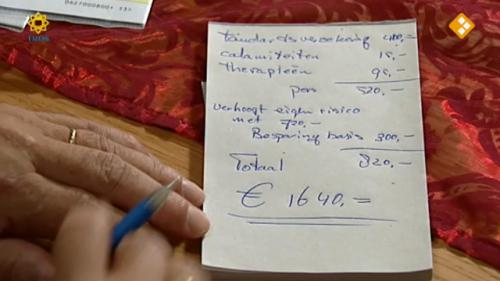 0627000800+ 13>
TROS
tandartsverzekering 400,=
calamiteiten 15,-
therapieën 95,-
pers 520,-
verhoogt eigen risico
met 720,-
Besparing basis 300,-
Totaal 820,-
€ 1640,=